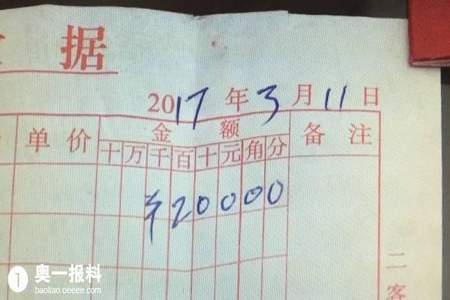 据
2017年3月11日
单价 金额 备注
十万千百十元角分
¥20000
二
客
奥一报料
baoliao.oeeee.com